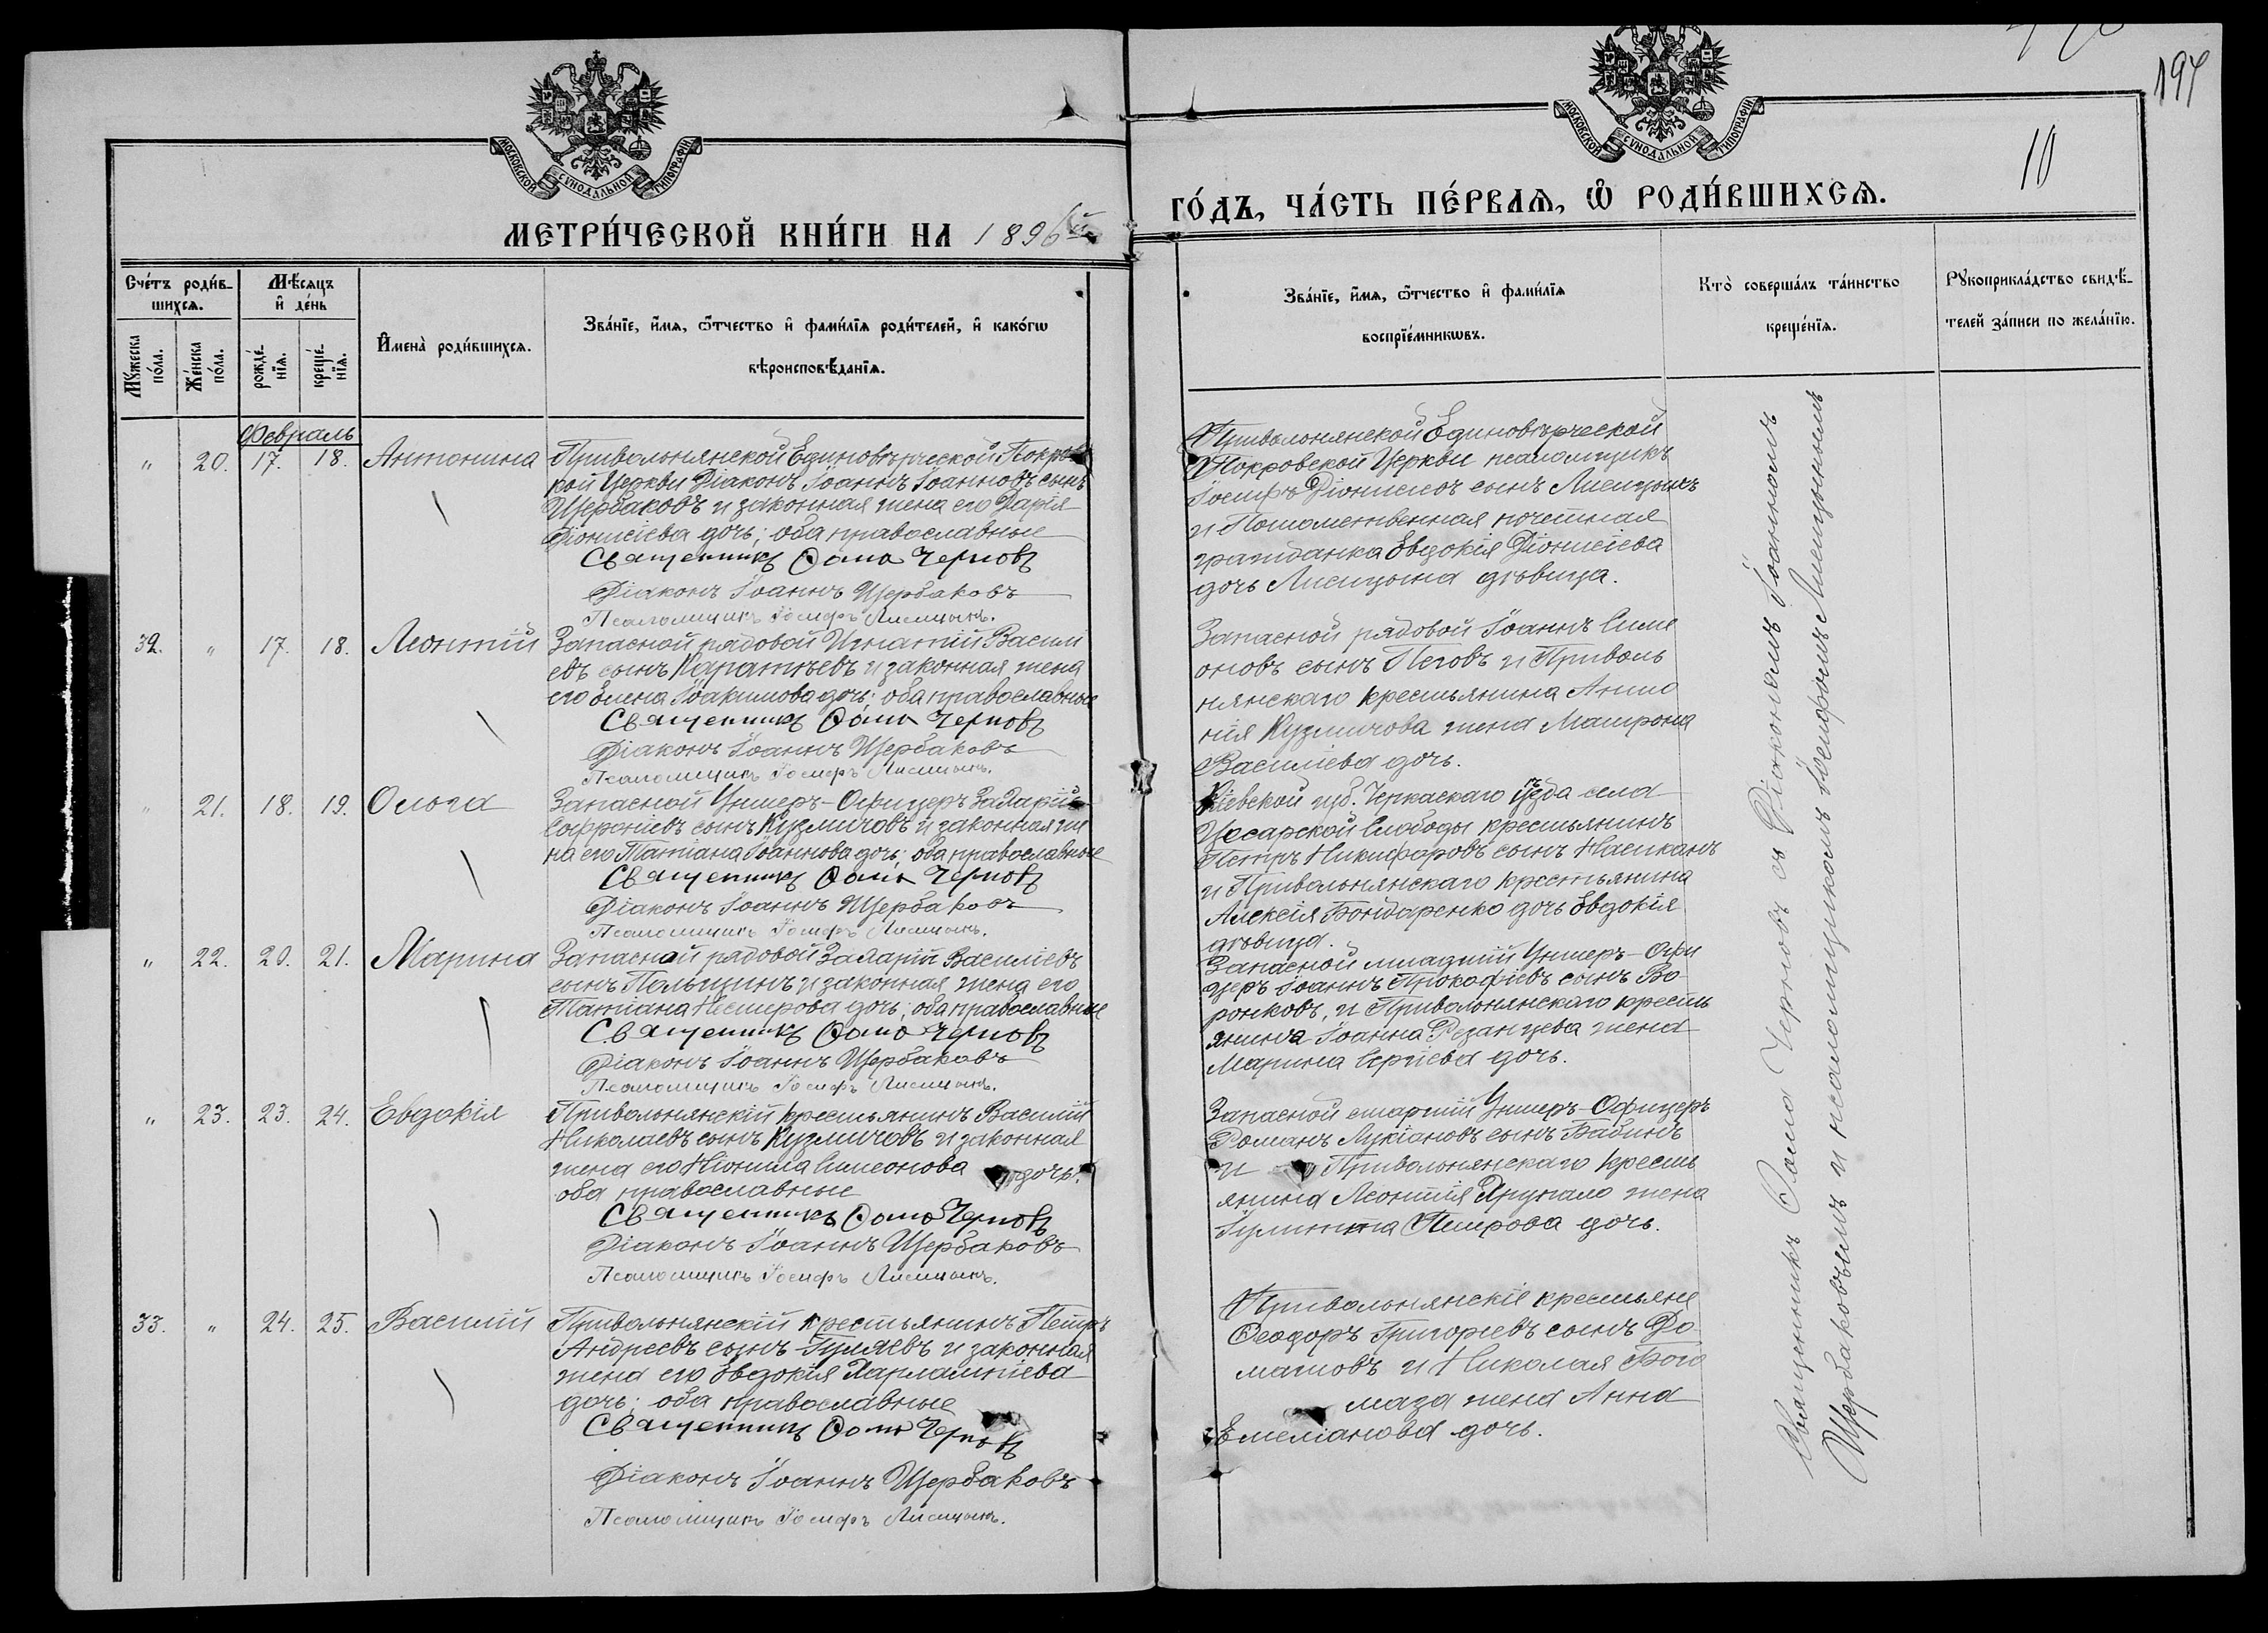 197
10
МОСКОВСКОЙ СѴНОДАЛЬНОЙ ТИПОГРАФІИ
МОСКОВСКОЙ СѴНОДАЛЬНОЙ ТИПОГРАФІИ
МЕТРИ́ЧЕСКОЙ КНИ́ГИ НА 1896й
ГО́ДЪ, ЧА́СТЬ ПЕ́РВАѦ, Ѽ РОДИ́ВШИХСѦ.
Сче́тъ роди́в-
шихсѧ.
Мꙋ́жеска по́ла.
Же́нска по́ла.
Мѣ́сѧцъ
и҆ де́нь
рожде́-
нїѧ.
креще́-
нїѧ.
И҆мена̀ роди́вшихсѧ.
Зва́нїе, и҆́мѧ, ѻ҆́тчество и҆ фами́лїѧ роди́телей, и҆ како́гѡ
вѣроисповѣ́данїѧ.
Зва́нїе, и҆́мѧ, ѻ҆́тчество и҆ фами́лїѧ
воспрїе́мникѡвъ.
Кто̀ соверша́лъ та́инство
креще́нїѧ.
Рꙋкоприкла́дство свидѣ́-
телей за́писи по жела́нїю.
Февраль
" 20. 17. 18. Антонина
Привольнянской Единовѣрческой Покров
кой Церкви Діаконъ Іоаннъ Іоанновъ сынъ
Щербаковъ и законная жена его Дарія
Діонисіева дочь; оба православные
Священникъ Ѳома Черновъ
Діаконъ Іоаннъ Щербаковъ
Псаломщикъ Іосифъ Лисицынъ.
Привольнянской Единовѣрческой
Покровской Церкви псаломщикъ
Іосифъ Діонисіевъ сынъ Лисицынъ
и Потомственная почетная
гражданка Евдокія Діонисіева
дочь Лисицына дѣвица.
32. " 17. 18. Леонтій
Запасной рядовой Игнатій Васили
евъ сынъ Каратѣевъ и законная жена
его Елена Іоакимова дочь; оба православные
Священникъ Ѳома Черновъ
Діаконъ Іоаннъ Щербаковъ
Псаломщикъ Іосифъ Лисицынъ.
Запасной рядовой Іоаннъ Симе
оновъ сынъ Пеговъ и Приволь
нянскаго крестьянина Анто
нія Кузмичова жена Матрона
Василіева дочь.
" 21. 18. 19. Ольга
Запасной Унтеръ-Офицеръ Захарій
Софроніевъ сынъ Кузмичовъ и законная же
на его Татіана Іоаннова дочь; оба православные
Священникъ Ѳома Черновъ
Діаконъ Іоаннъ Щербаковъ
Псаломщикъ Іосифъ Лисицынъ.
Кіевской губ. Черкаскаго уѣзда села
Цесарской Слободы крестьянинъ
Петръ Никифоровъ сынъ Насиканъ
и Привольнянскаго крестьянина
Алексія Бондаренко дочь Евдокія
дѣвица.
" 22. 20. 21. Марина
Запасной рядовой Захарій Василіевъ
сынъ Польшинъ и законная жена его
Татіана Нестерова дочь; оба православные
Священникъ Ѳома Черновъ
Діаконъ Іоаннъ Щербаковъ
Псаломщикъ Іосифъ Лисицынъ.
Запасной младшій Унтеръ-Офи
церъ Іоаннъ Прокофіевъ сынъ Во-
ронковъ, и Привольнянскаго кресть
янина Іоанна Резанцева жена
Марина Сергіева дочь.
" 23. 23. 24. Евдокія
Привольнянскій крестьянинъ Василій
Николаевъ сынъ Кузмичовъ и законная
жена его Неонила Симеонова дочь:
оба православные
Священникъ Ѳома Черновъ
Діаконъ Іоаннъ Щербаковъ
Псаломщикъ Іосифъ Лисицынъ.
Запасной старшій Унтеръ-Офицеръ
Романъ Лукіановъ сынъ Бабинъ
и Привольнянскаго кресть
янина Леонтія Хрупало жена
Іулитта Петрова дочь.
33. " 24. 25. Василій
Привольнянскій крестьянинъ Петръ
Андреевъ сынъ Гуляевъ и законная
жена его Евдокія Харлампіева
дочь; оба православные
Священникъ Ѳома Черновъ
Діаконъ Іоаннъ Щербаковъ
Псаломщикъ Іосифъ Лисицынъ.
Привольнянскіе крестьяне
Ѳеодоръ Григоріевъ сынъ До-
матовъ и Николая Бого
маза жена Анна
Емеліанова дочь.
Священникъ Ѳома Черновъ съ Діакономъ Іоанномъ
Щербаковымъ и псаломщикомъ Іосифомъ Лисицынымъ